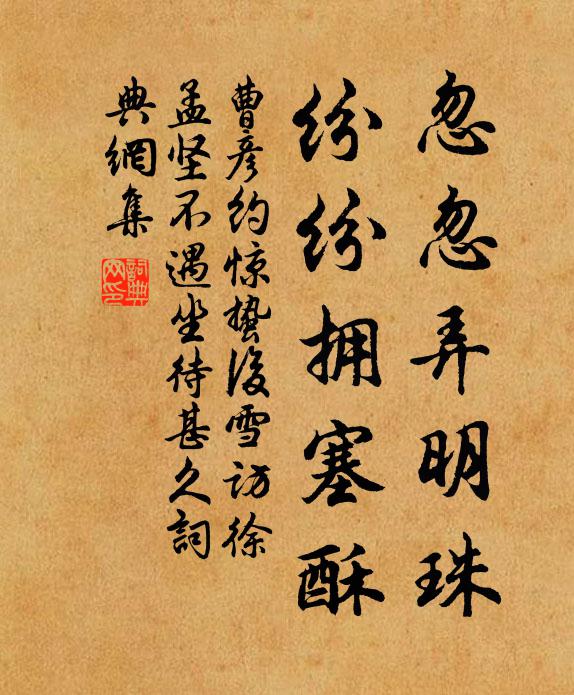 忽忽弄明珠
纷纷拥塞酥
曹彦约惊蛰后雪访徐
孟坚不遇坐待甚久词
典網集
詞典網印